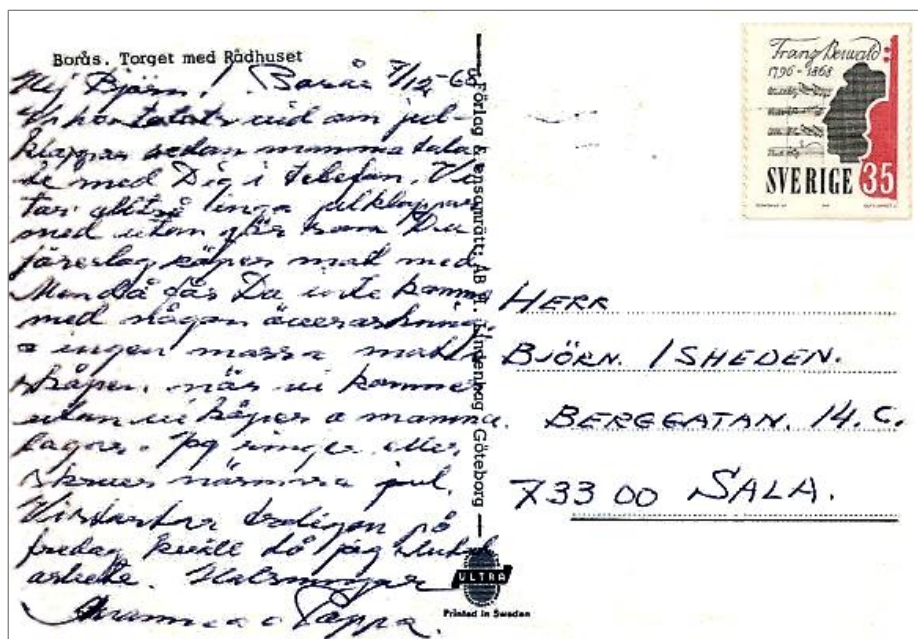 Borås. Torget med Rådhuset
Hej Björn! Borås 7/12-68
om jul-
klappar sedan mamma tala
de med Dig i telefon. Vi
tar alltså inga julklappar
med utan gör som Du
föreslog köper mat med
Men då får Du inte komma
med någon överraskning
o ingen massa mat i
skåpen. när vi kommer
utan vi köper o mamma
lagar. Jag ringer eller
skriver närmare jul.
Vi startar troligen på
fredag kväll då jag slutat
arbete. Hälsningar
Mamma o Pappa.
Förlag & ensamrätt: AB H. Lindenhag Göteborg
ULTRA
Printed in Sweden
Franz Berwald
1796-1868
SVERIGE 35
HERR
BJÖRN. ISHEDEN.
BERGGATAN. 14.C.
733 00 SALA.